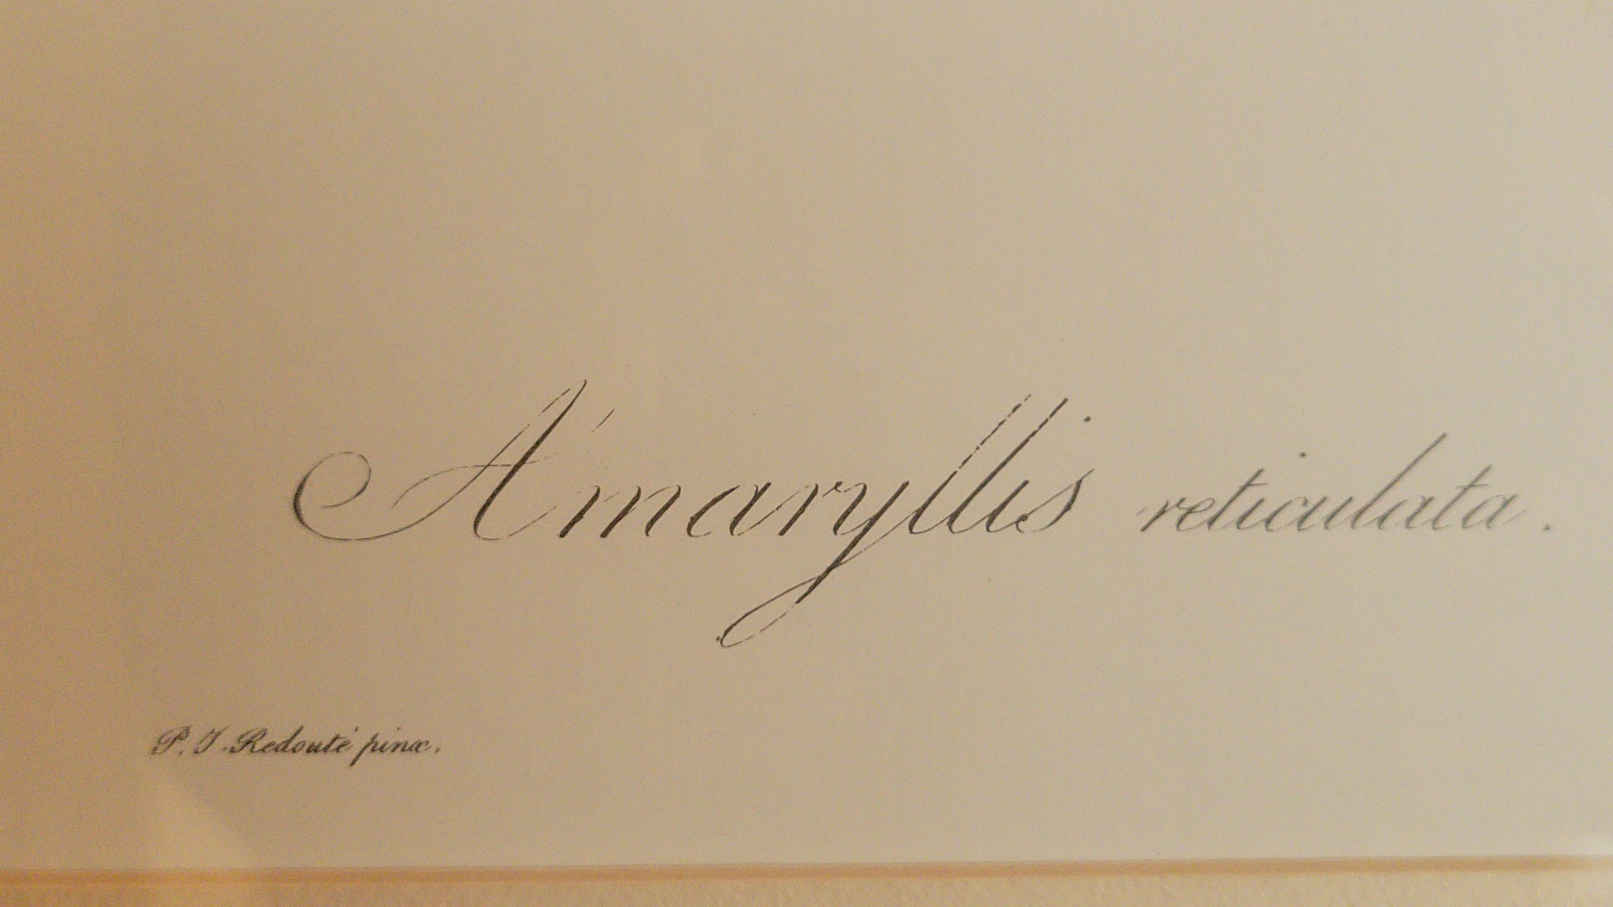 Amaryllis reticulata.
P. J. Redouté pinx.